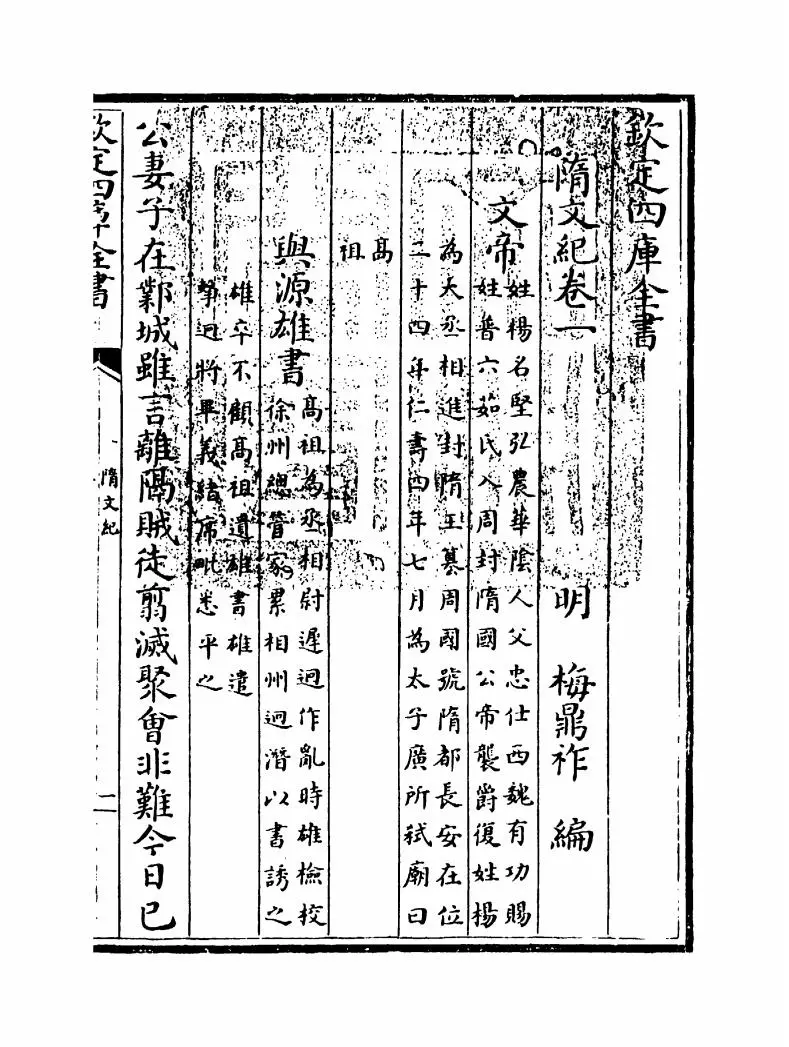 欽定四庫全書
隋文紀卷一
明 梅鼎祚 編
文帝
姓楊名堅弘農華陰人父忠仕西魏有功賜
姓普六茹氏入周封隋國公帝襲爵復姓楊
為大丞相進封隋王纂周國號隋都長安在位
二十四年仁壽四年七月為太子廣所弒廟曰
高
祖
與源雄書
高祖為丞相尉遲迥作亂時雄檢校
徐州總管家累相州迥潛以書誘之
雄卒不顧高祖遺雄書雄遣
擊迥將畢義緒席毗悉平之
公妻子在鄴城雖言離隔賊徒翦滅聚會非難今日已
欽定四庫全書
隋文紀
二